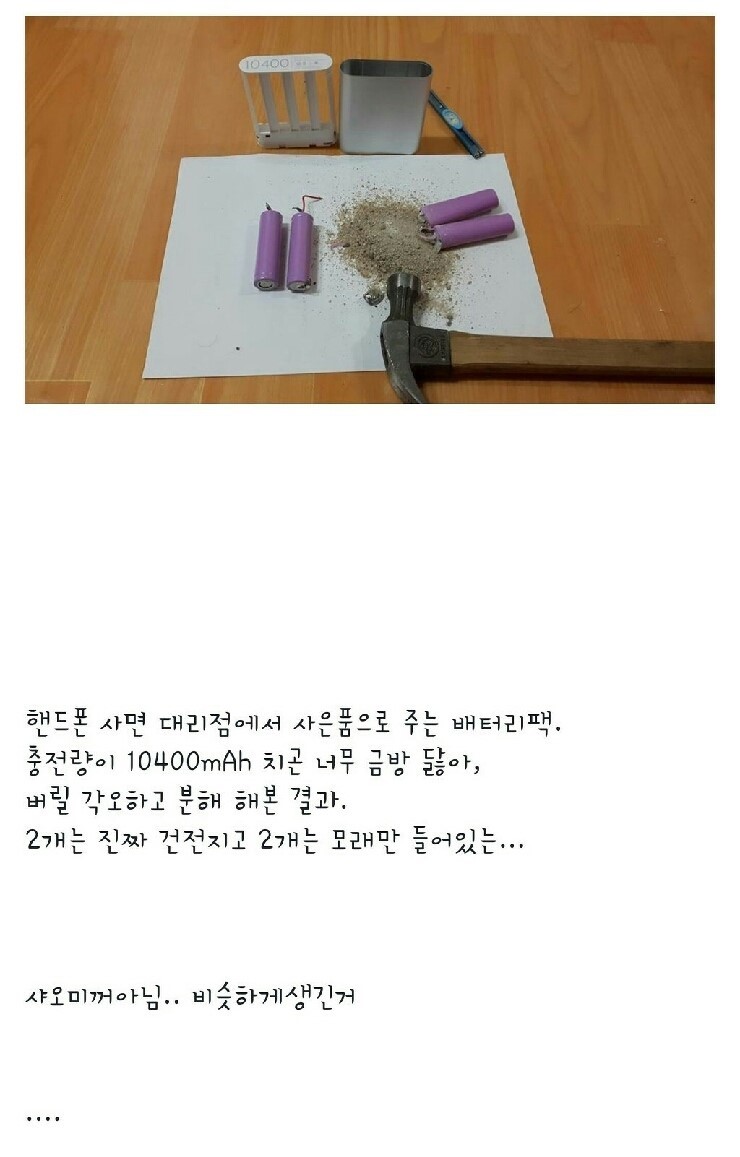 10400
핸드폰 사면 대리점에서 사은품으로 주는 배터리팩.
충전량이 10400mAh 치곤 너무 금방 닳아,
버릴 각오하고 분해 해본 결과.
2개는 진짜 건전지고 2개는 모래만 들어있는...
샤오미꺼아님.. 비슷하게생긴거
....